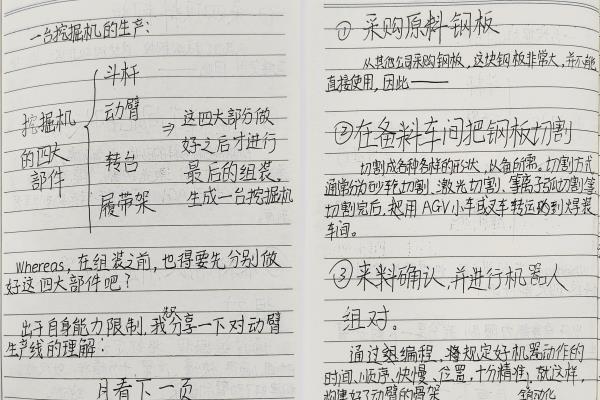 一台挖掘机的生产:
挖掘机
的四大
部件
斗杆
动臂
转台
履带架
⇒ 这四大部分做
好之后才进行
最后的组装。
生成一台挖掘机
whereas, 在组装之前, 也得要先分别做
好这四大部件吧?
出于自身能力限制, 我想分享一下对动臂
生产线的理解:
看下一页
① 采购原料钢板
从其他公司采购钢板, 这块钢板非常大, 并不能
直接使用, 因此——
②在备料车间把钢板切割
切割成各种各样的形状, 以备所需。切割方式
通常分为砂轮切割、激光切割、等离子弧切割等
切割完后, 把用AGV小车或叉车转运到焊装
车间。
③来料确认, 并进行机器人
组对。
通过编程、将规定好机器动作的
时间、顺序、快慢、位置, 十分精准, 就这样,
构建好了动臂的骨架
自动化